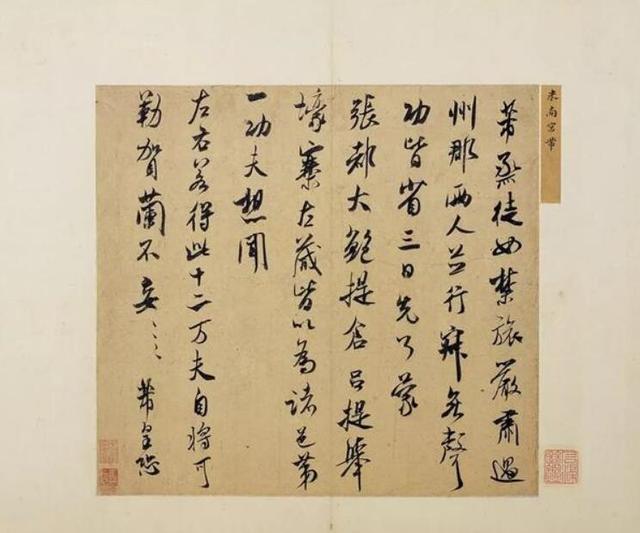 米南宮
芾烝徒如禁旅嚴肅過
州郡兩人並行寂無聲
功皆省三日先了蒙
張都大鮑提倉呂提舉
壕寨左藏皆以為諸邑第
一功夫想聞
左右若得此十二万夫自將可
勒賀蘭不妄ミミ 芾皇恐